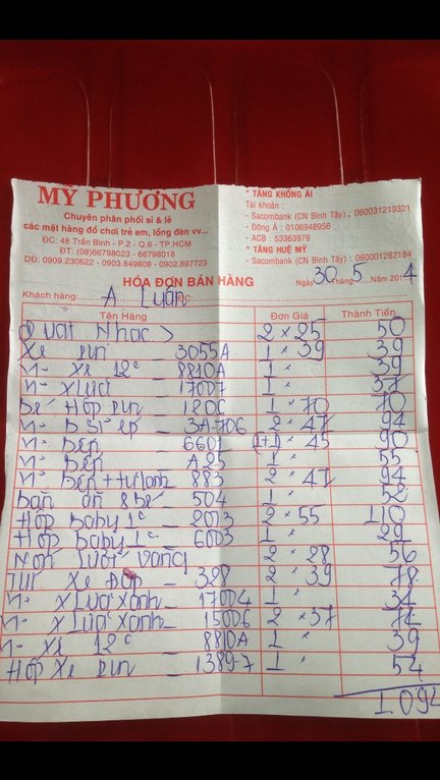 MỸ PHƯƠNG
Chuyên phân phối sỉ & lẻ
các mặt hàng đồ chơi trẻ em, lồng đèn vv...
ĐC: 48 Trần Bình - P.2 - Q.6 - TP.HCM
ĐT: (08)66798023 - 66798018
DĐ: 0909.230622 - 0903.849808 - 0902.897723
* TĂNG KHÔNG ÁI
Tài khoản :
- Sacombank (CN Bình Tây) . 060031219321
- Đông Á : 0106948956
- ACB : 53363979
* TĂNG HUỆ MỸ
- Sacombank (CN Bình Tây) . 060001262184
HÓA ĐƠN BÁN HÀNG
Ngày 30 Tháng 5 Năm 2014
Khách hàng: A Luân
Tên Hàng Đơn Giá Thành Tiền
Quat Nhac 2 × 25 50
Xe pin 3055A 1 × 39 39
n- Xe 12c 8810A 1 " 39
n- X Lửa 17007 1 " 37
Hộp pin 120C 1 × 70 70
n- 3A-706 2 × 47 94
n- Đèn 6601 (1+1) × 45 90
n- Đèn A25 1 " 55
n- Đèn + 883 2 × 47 94
bàn ăn 8 bé 504 1 " 52
Hộp baby 1c 2003 2 × 55 110
Hộp baby 1c 6003 1 " 29
Nón Lưới Vàng 2 × 28 56
Xe Đạp 328 2 × 39 78
n- X Lửa Xanh 17004 1 "
n- X Lửa Xanh 15006 2 × 37 74
n- Xe 12c 8810A 1 " 39
Hộp Xe pin 1389-7 1 " 54
1094